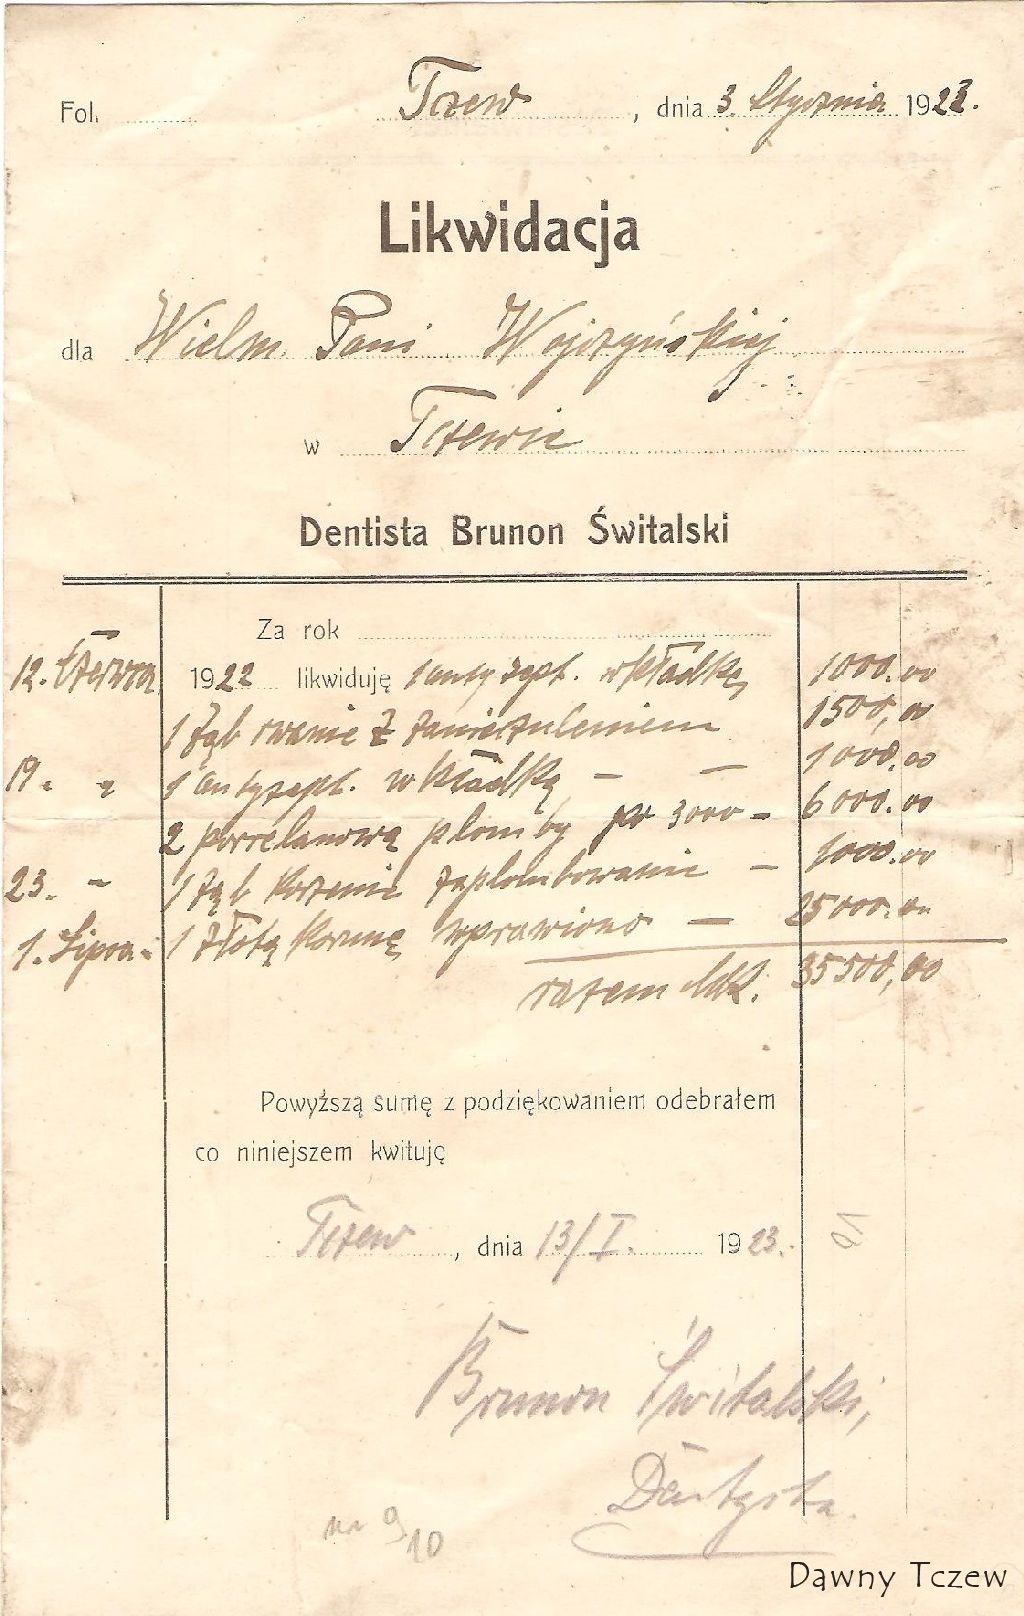 Fol. Tczew, dnia 3. Stycznia 1923.
Likwidacja
dla Wielm. Pani Wojczyńskiej
w Tczewie
Dentista Brunon Świtalski
Za rok
12. Czerwca 1922 likwiduję 1 antyzept. wkładkę 1000.00
1 ząb rwanie z zanieczuleniem 1500,00
19. " 1 antyzept. wkładkę — — 1000.00
2 porcelanową plomby po 3000 — 6000.00
23. " 1 ząb korzenie zaplombowanie — 1000.00
1. Lipca 1 złotą koronę wprawiono — 25000.00
razem Mk. 35500,00
Powyższą sumę z podziękowaniem odebrałem
co niniejszem kwituję
Tczew, dnia 13/I. 1923.
Brunon Świtalski,
Dentysta.
na 9/10
Dawny Tczew